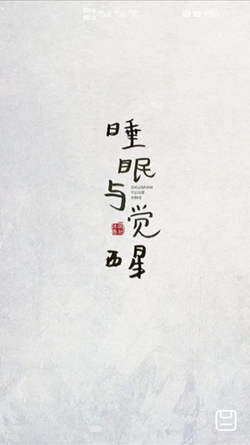 睡眠与觉醒
SHUIMIAN
YUJUE
XING